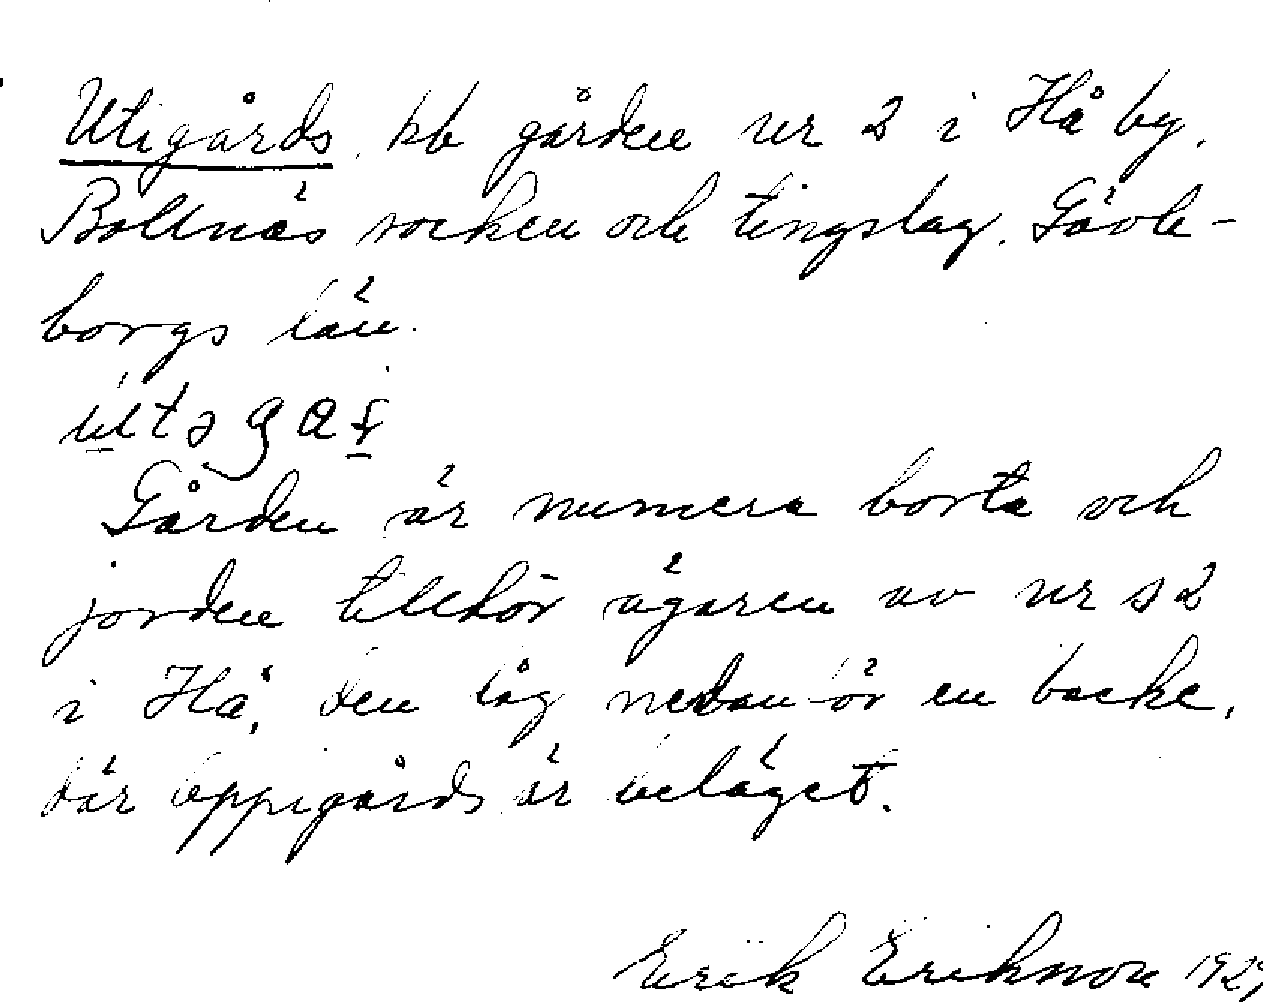 Utigårds. kb gården nr 2 i Hå by.
Bollnäs socken och tingslag. Gävle-
borgs län.
Gården är numera borta och
jorden tillhör ägaren av nr 2
i Hå, den låg nedanför en backe,
där Oppigårds är beläget.
Erik Erikson